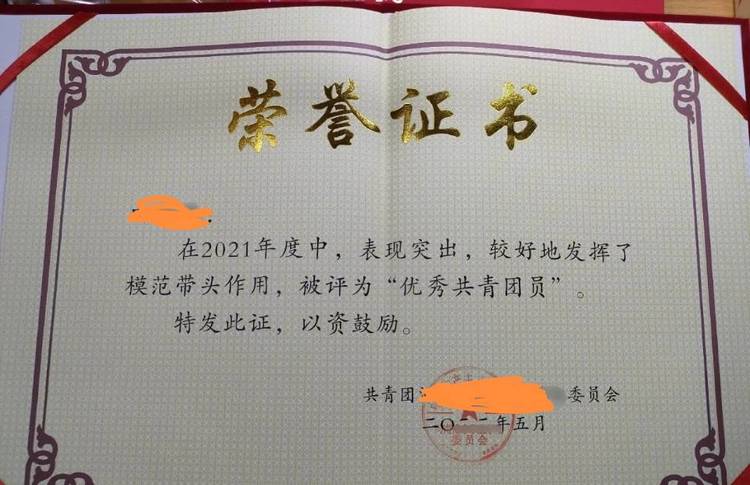 荣誉证书
在2021年度中，表现突出，较好地发挥了
模范带头作用，被评为“优秀共青团员”。
特发此证，以资鼓励。
共青团
委员会
二〇二二年五月
委员会